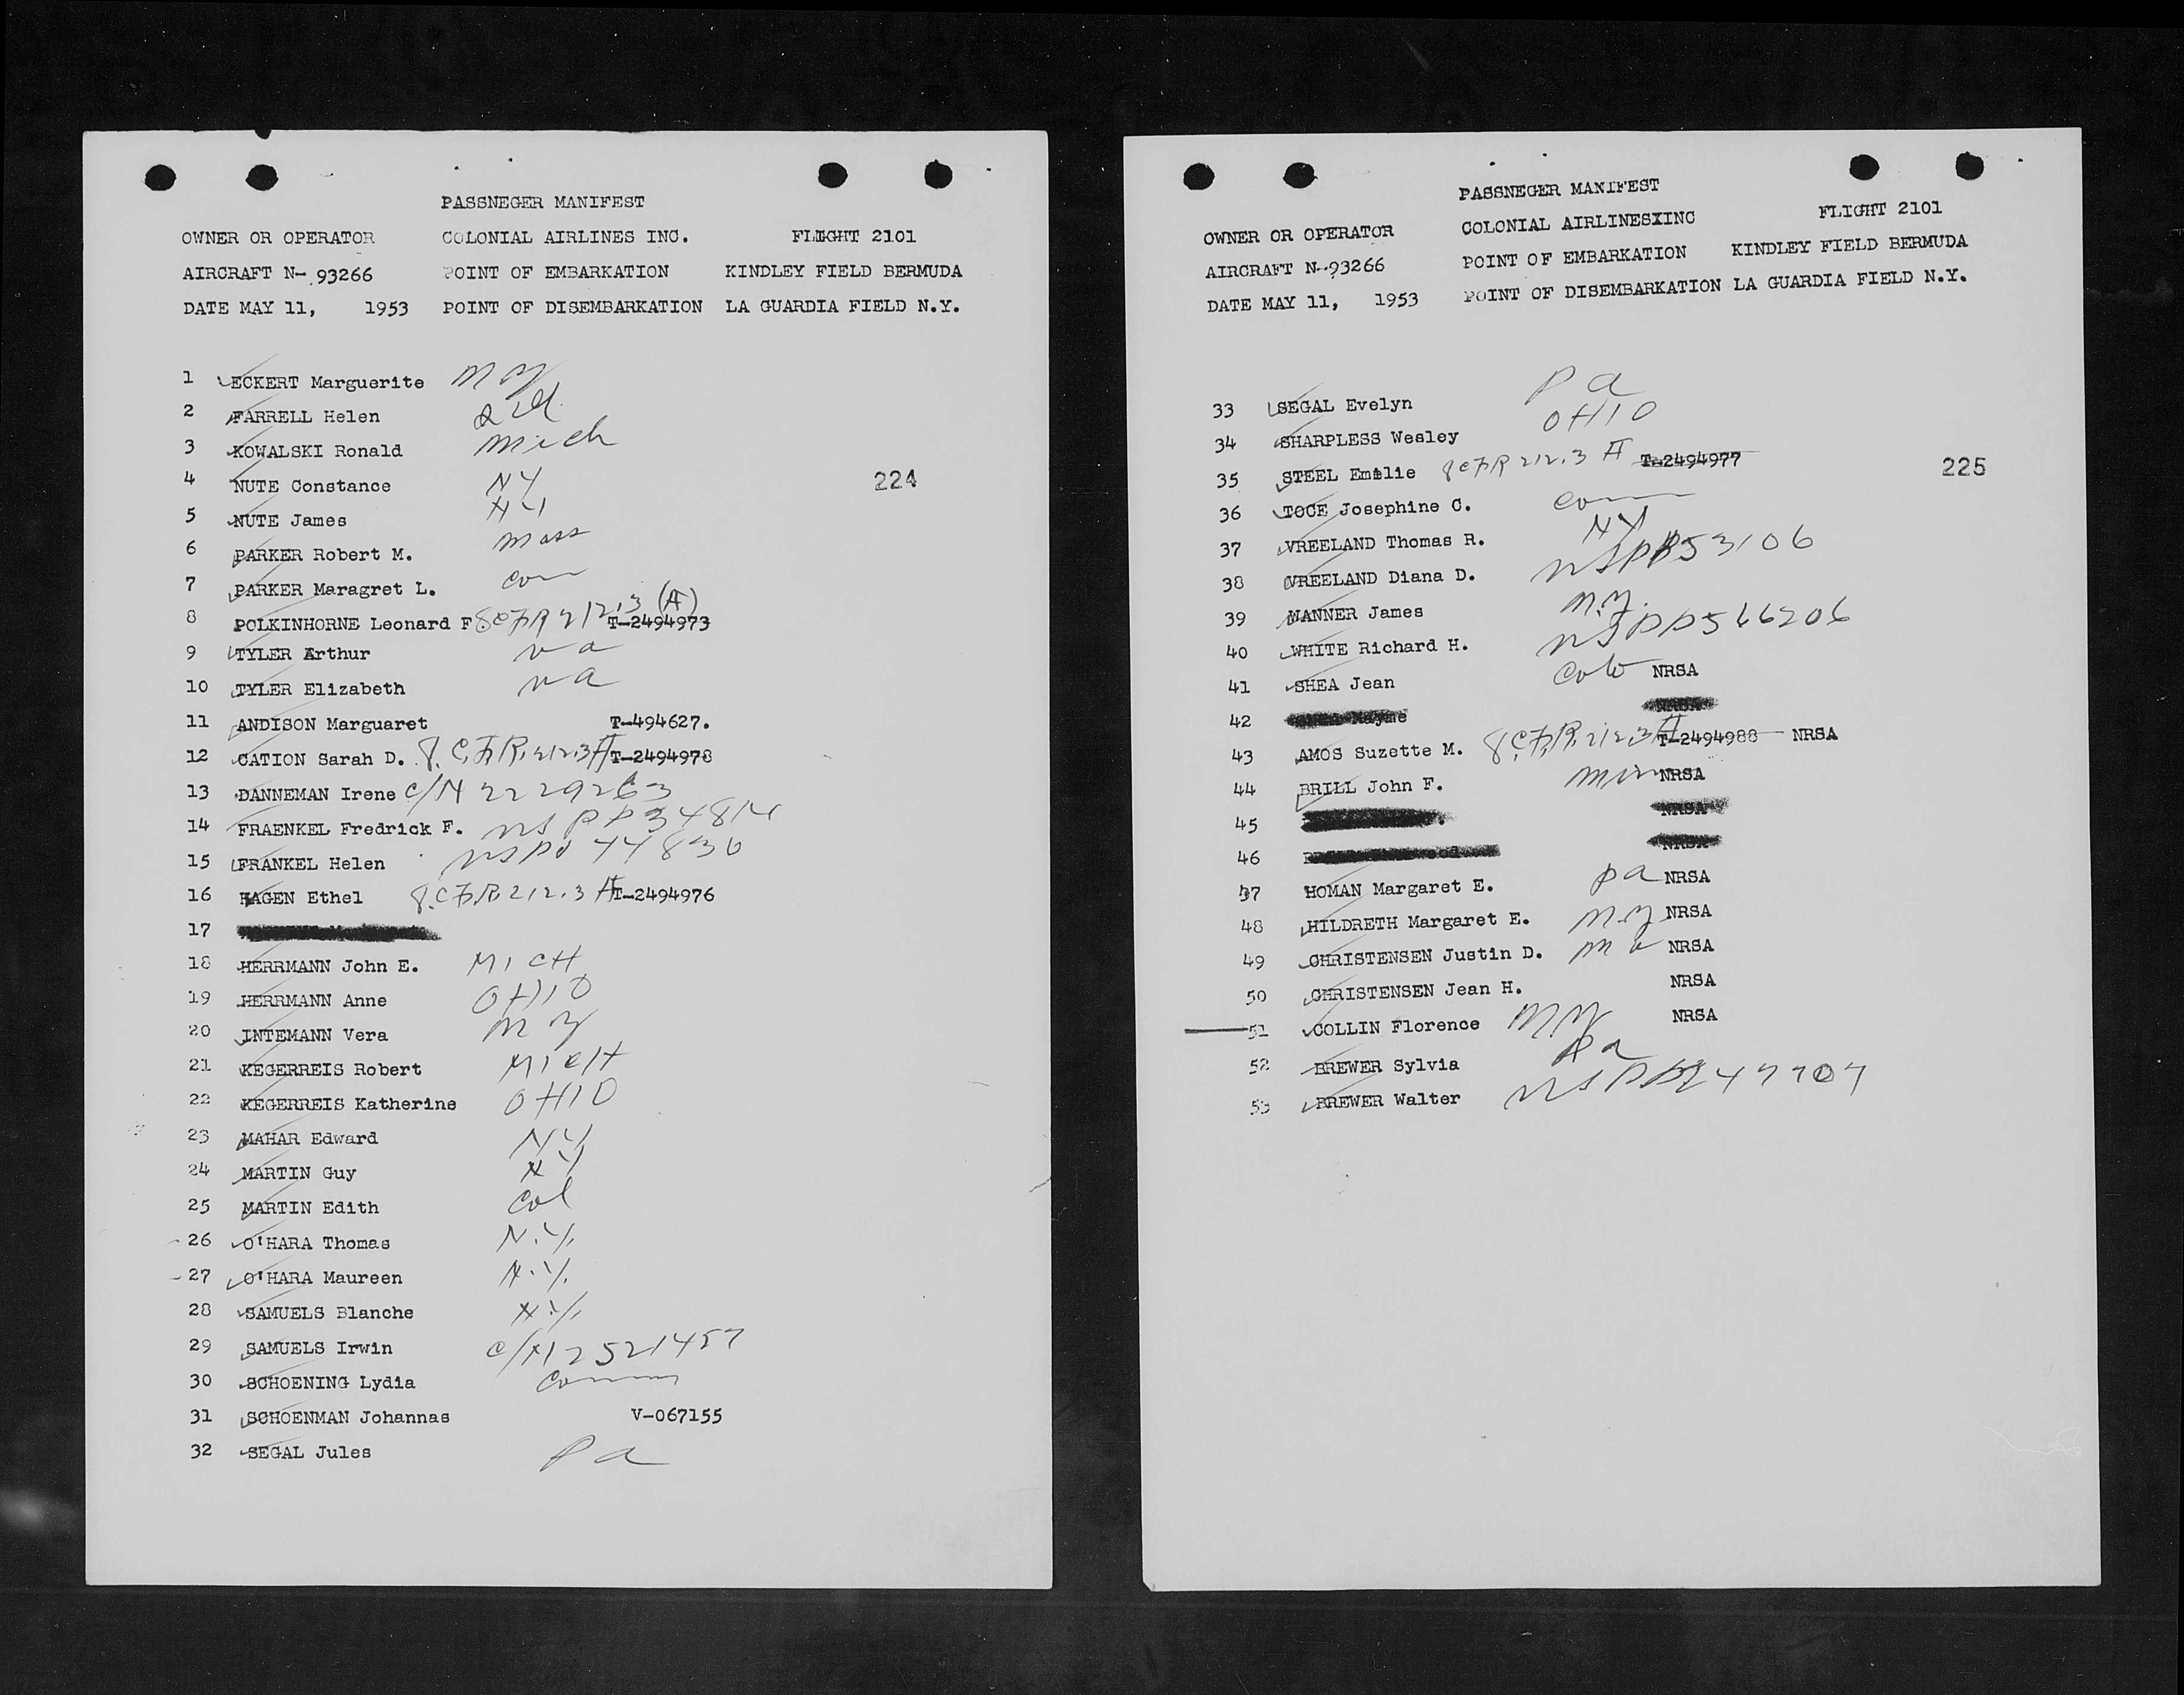 PASSNEGER MANIFEST
OWNER OR OPERATOR COLONIAL AIRLINES INC. FLIGHT 2101
AIRCRAFT N- 93266 POINT OF EMBARKATION KINDLEY FIELD BERMUDA
DATE MAY 11, 1953 POINT OF DISEMBARKATION LA GUARDIA FIELD N.Y.
1 ECKERT Marguerite
2 FARRELL Helen
3 KOWALSKI Ronald Mich
4 NUTE Constance NY
224
5 NUTE James NY
6 PARKER Robert M. Mass
7 PARKER Maragret L. Con
8 POLKINHORNE Leonard F 8CFR 212.3 (A) T-2494973
9 TYLER Arthur
10 TYLER Elizabeth
11 ANDISON Marguaret T-494627.
12 CATION Sarah D. 8.C.F.R. 212.3 A T-2494978
13 DANNEMAN Irene C/N 2229263
14 FRAENKEL Fredrick F. NSPP34814
15 FRANKEL Helen 44830
16 HAGEN Ethel 8.C.F.R 212.3 A T-2494976
17
18 HERRMANN John E. MICH
19 HERRMANN Anne OHIO
20 INTEMANN Vera
21 KEGERREIS Robert MICH
22 KEGERREIS Katherine OHIO
23 MAHAR Edward NY
24 MARTIN Guy NY
25 MARTIN Edith Col
26 O'HARA Thomas N.Y.
27 O'HARA Maureen N.Y.
28 SAMUELS Blanche N.Y.
29 SAMUELS Irwin C/N 2521457
30 SCHOENING Lydia Conn
31 SCHOENMAN Johannas V-067155
32 SEGAL Jules Pa
PASSNEGER MANIFEST
COLONIAL AIRLINESXINC FLIGHT 2101
OWNER OR OPERATOR
POINT OF EMBARKATION KINDLEY FIELD BERMUDA
AIRCRAFT N-93266
POINT OF DISEMBARKATION LA GUARDIA FIELD N.Y.
DATE MAY 11, 1953
33 SEGAL Evelyn Pa
34 SHARPLESS Wesley OHIO
35 STEEL Emilie 8CFR 212.3 A T-2494977
225
36 TOCE Josephine C. Conn
37 VREELAND Thomas R. NY
38 VREELAND Diana D. NSPP53106
39 MANNER James N.Y.
40 WHITE Richard H. NSPP566206
41 SHEA Jean NRSA
42 Mayme NRSA
43 AMOS Suzette M. 8.C.F.R. 212.3 A T-2494988 NRSA
44 BRILL John F. NRSA
45 NRSA
46 NRSA
47 HOMAN Margaret E. Pa NRSA
48 HILDRETH Margaret E. NRSA
49 CHRISTENSEN Justin D. NRSA
50 CHRISTENSEN Jean H. NRSA
51 COLLIN Florence NRSA
52 BREWER Sylvia Pa
53 BREWER Walter